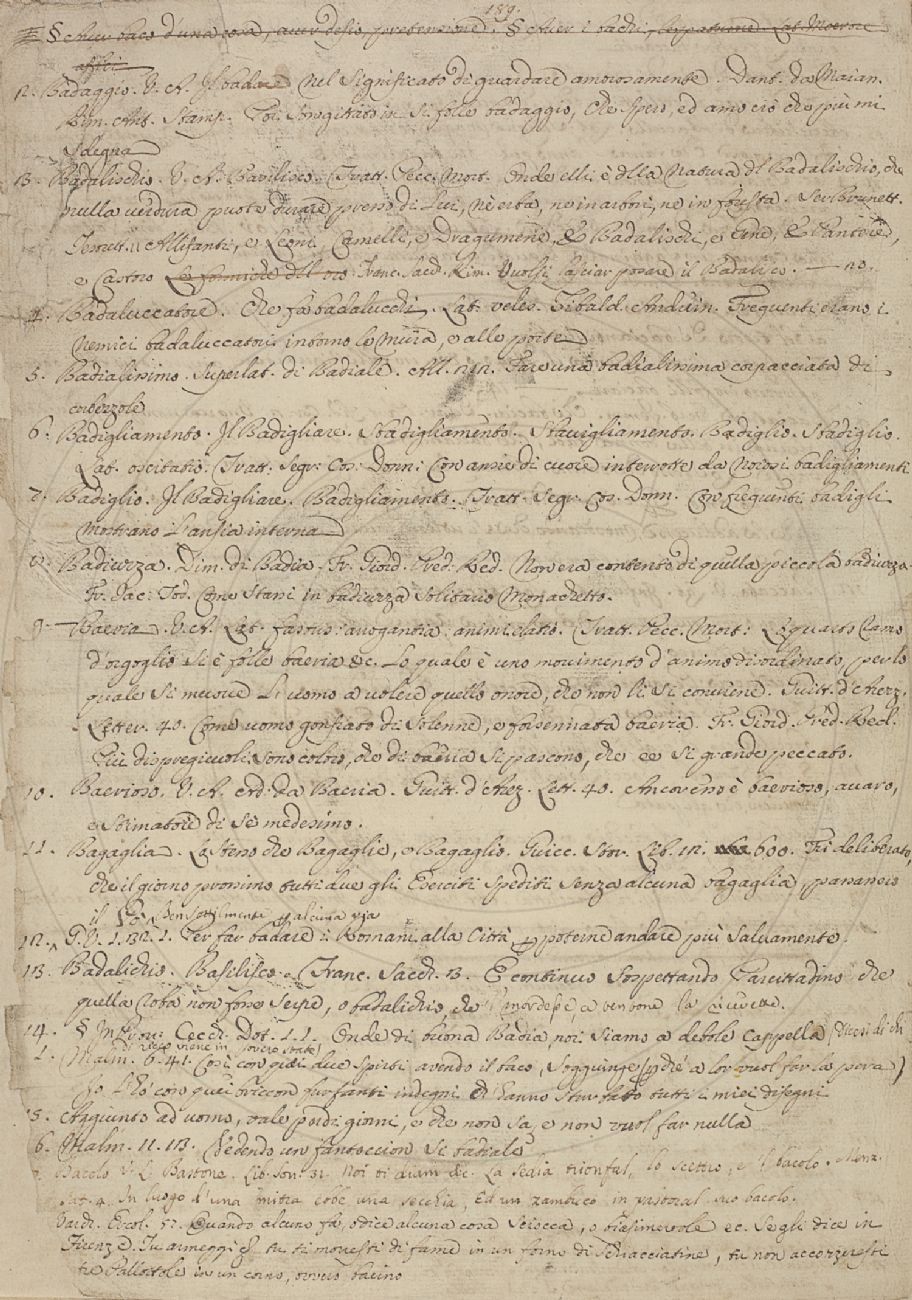 189.
§ Aver baco d'una cosa, aver desio, pretensione. § Aver i bachi,
2. Badaggio. V. A. Il badare nel significato di guardare amorosamente. Dant. da Maian.
Rim. Ant. Stamp. Poi. in si folle badaggio, che spero, ed amo ciò che più mi
sdegna
13. Badalischio. V. A. Basilisco. Tratt. Pecc. Mort. Onde elli è dlla natura dl Badalischio, che
nulla verdura puote durare presso di Lui, nè erba, ne in arbori, ne in foresta. Ser Brunett.
Tesorett. Allifanti, e Leoni, Camelli, e Dragumene, E Badalischi, e Gene, E Pantere,
e Castoro Franc. Sacch. Rim. Vuolsi lasciar posare il Badalisco.
4. Badaluccatore. Che fà badalucchi. Lat. veles. Tibald. Anduin. Frequenti erano i
nemici badaluccatori intorno le mura, e alle porte
5. Badialissimo. Superlat. di Badiale. All. Fare una badialissima corpacciata di
6. Badigliamento. Il Badigliare. Sbadigliamento. Sbavigliamento. Badiglio. Sbadiglio.
Lat. oscitatio. Tratt. Segr. Cos. Donn. Con ansie di cuore interrotte da noiosi badigliamenti
7. Badiglio. Il Badigliare. Badigliamento. Tratt. Segr. Cos. Donn. Con frequenti badigli
mostrano l'ansia interna
Badiuzza. Dim. di Badia. Fr. Giord. Pred. Red. Non era contento di quella piccola badiuzza.
Fr. Iac. Tod. Come stassi in badiuzza Solitario Monachetto.
9. Baeria. V. A. Lat. fastus: arrogantia: animi elatio. Tratt. Pecc. Mort. Lo quarto ramo
d'orgoglio si è folle baeria &c. Lo quale è uno movimento d'animo disordinato, per lo
quale si muove Li uomo a volere quello onore, che non li si conviene. Guitt. d'Arezz.
Letter. 40. Come uomo gonfiato di solenne, e forsennata baeria. Fr. Giord. Pred. Red.
Più dispregievoli sono coloro, che di baeria si pascono, che ee si grande peccato.
10. Baerioso. V. A. Add. da Baeria. Guitt. d'Arez. Lett. 40. Ancora esso è baerioso, avaro,
e stimatore di se medesimo.
11. Bagaglia. Lo stesso che Bagaglie, e Bagaglio. Guicc. Stor. Lib. 600. Fu deliberato,
che il giorno prossimo tutti due gli Eserciti spediti senza alcuna bagaglia passassero
il Pò. Ben sottilmente p alcuna via
12. G. V. 1. 32. 1. Per far badare i Romani alla Città p poterne andare più salvamente.
13. Badalischio. Basilisco. Franc. Sacch. 13. E continuo sospettando l'accittadino che
quella zotta non fosse serpe, o badalischio, che
14. § In Prov. Cecch. Dot. 1. 1. Onde di buona Badia, noi siamo a debole Cappella
1. Malm. 6. 41. Così con quei due spirti avendo il baco, Soggiunge (perch'è a lor vuol far la pera)
Io l'hò con quei briccon furfanti indegni Ch'hanno sturbato tutti i miei disegni
15. Aggiunto ad uomo, vale perdigiorni, e che non sa, e non vuol far nulla
6. Malm. 11. 13. Vedendo un fantoccion si badiale
Bacolo V. L. Bastone. Lib. Son. 31. Noi ti diam &c. La sedia trionfal, lo scettro, e 'l bacolo. Menz.
Sat. 4. In luogo d'una mitra ebbe una secchia, Ed un zambuco in pastoral suo bacolo.
Varch. Ercol. 57. Quando alcuno fa, o dice alcuna cosa sciocca, o biasimevole ec. Segli dice in
Firenze. Tu armeggi tu ti morresti di fame in un forno di schiacciatine, tu non accozzeresti
tre Pallottole in un corno, ovvero bacino